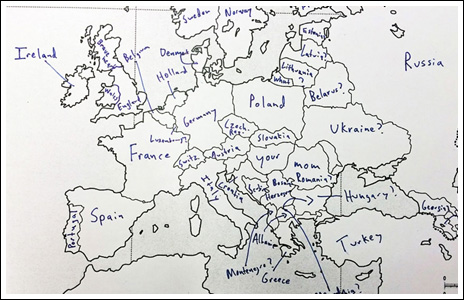 Sweden
Norway
Ireland
Belgium
Denmark
Holland
Estonia
Latvia
Lithuania
What?
Russia
Wales
England
Belarus?
Poland
Germany
Luxembourg
Czech.
Rep.
Ukraine?
France
Slovakia
Switz.
Austria
your
mom
Italy
Croatia
Serbia
Bosnia
Herzog
Romania?
Hungary?
Georgia
Portugal
Spain
Albania
Montenegro?
Greece
Turkey